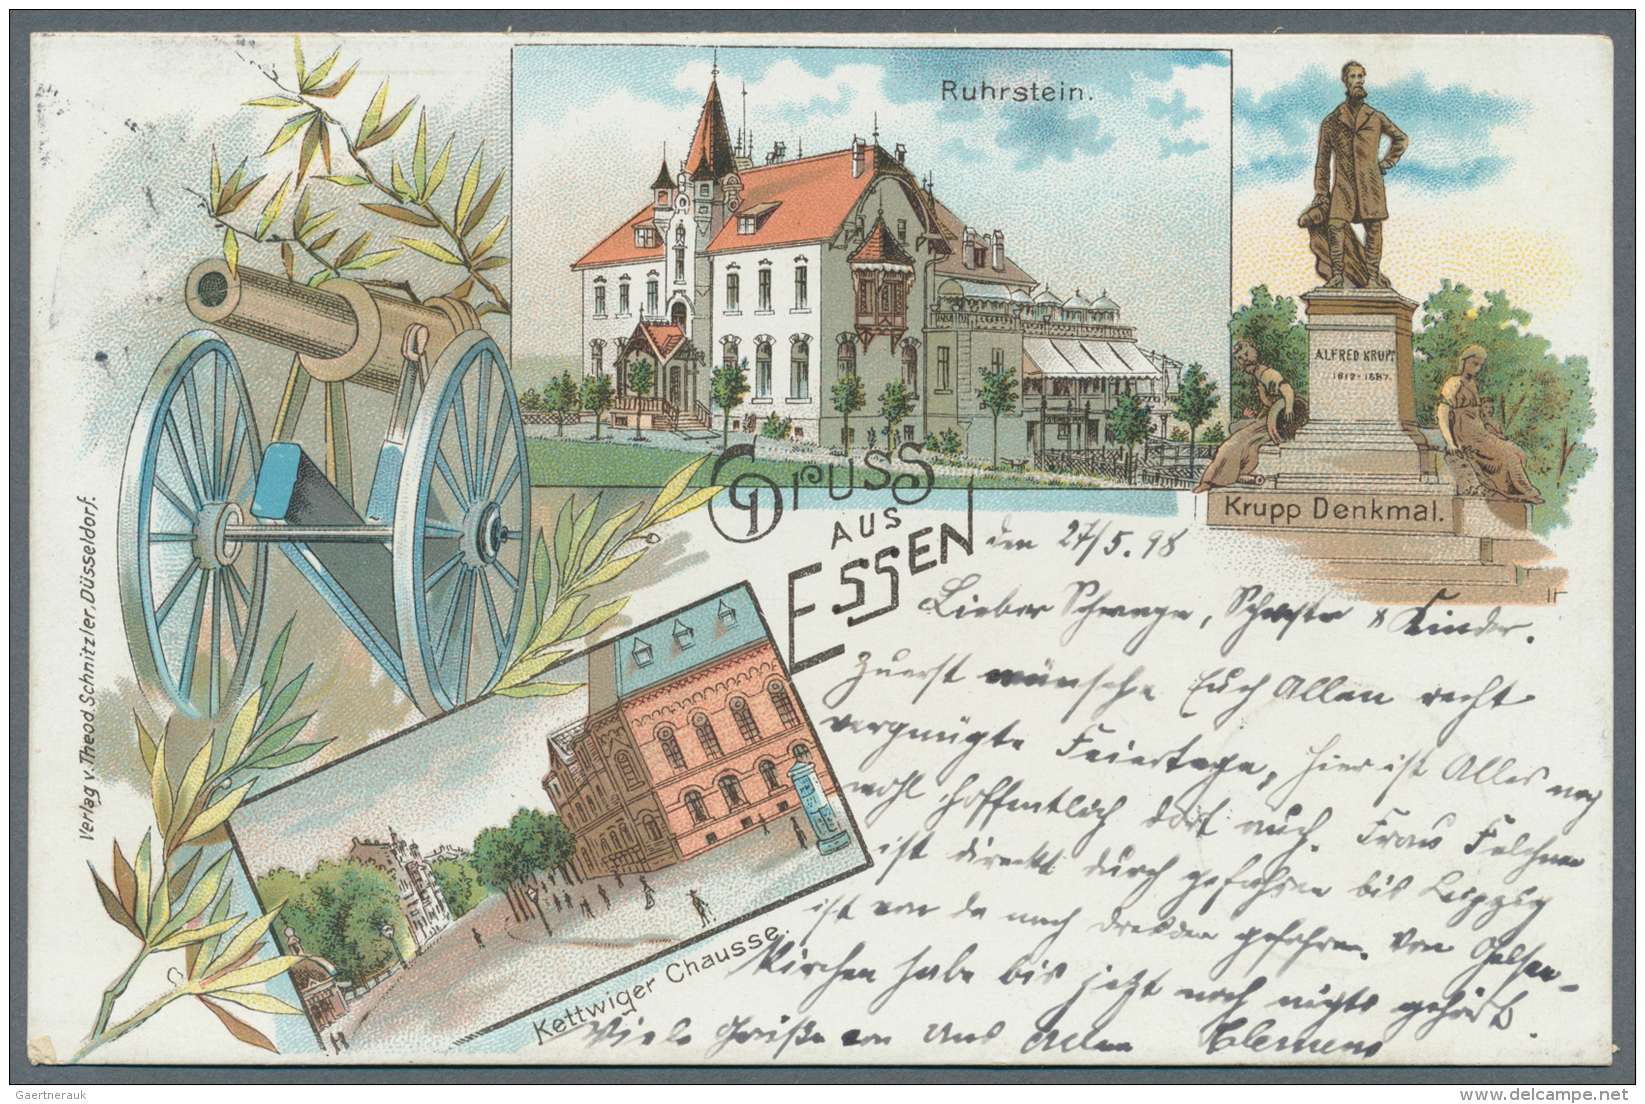 Ruhrstein.
ALFRED KRUPP
1812-1887.
Krupp Denkmal.
GRUSS
AUS
ESSEN
den 27/5. 98
Lieber Schwager, Schwester & Kinder.
Zuerst wünsche Euch Allen recht
vergnügte Feiertage, hier ist Alles noch
wohl hoffentlich dort auch. Frau
ist direckt durch gefahren bis Leipzig
ist von da nach Dresden gefahren. Von Gelsen-
kirchen habe bis jetzt noch nichts gehört.
Viele Grüße von Uns Allen Clemens
Kettwiger Chausse.
Verlag v. Theod. Schnitzler, Düsseldorf.
Gaertnerauk
delcampe.net